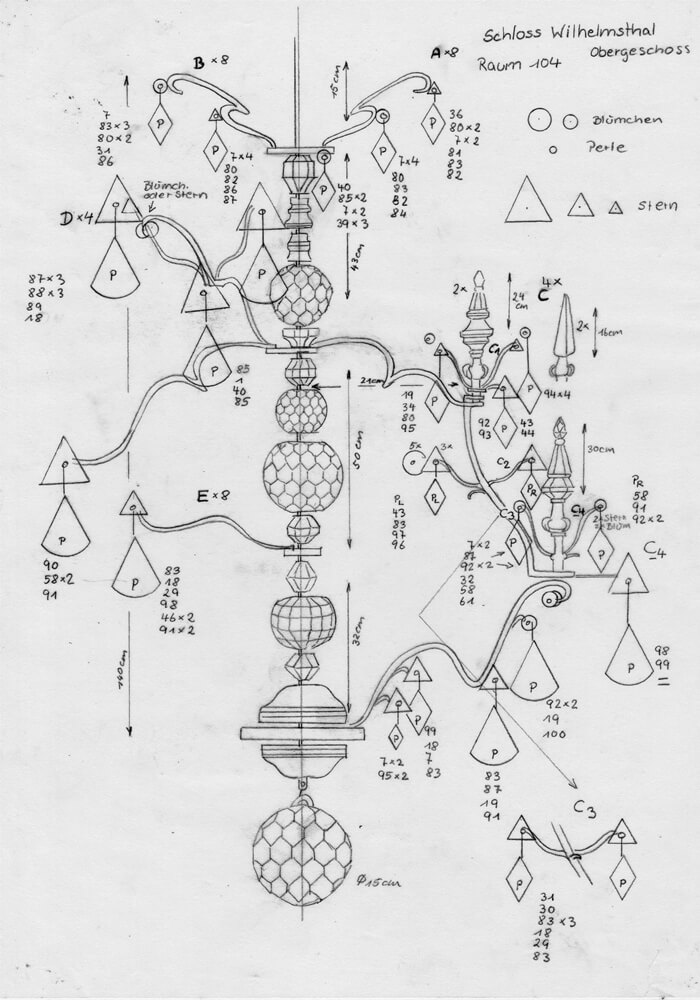 Schloss Wilhelmsthal
Obergeschoss
Raum 104
Blümchen
Perle
Stern
B × 8
A × 8
15cm
7
83×3
80×2
31
86
P
P
P
P
36
80×2
7×2
81
83
82
7×4
80
82
86
87
7×4
80
83
82
84
P
40
85×2
7×2
39×3
Blümch.
oder Stern
D × 4
P
P
43cm
87×3
88×3
89
18
2×
24
cm
4×
C
2×
16cm
C1
P
85
1
40
85
21cm
19
34
80
95
P
P
P
94×4
92
93
43
44
50 cm
5×
3×
C2
30cm
PL
PR
PL
43
83
97
96
PR
58
91
92×2
C3
C4
2×Stern
P
P
7×2
87
92×2
32
58
61
C4
E × 8
P
90
58×2
91
P
83
18
29
98
46×2
91×2
32cm
140cm
P
98
99
P
92×2
19
100
P
83
87
19
91
P
P
99
18
7
83
7×2
95×2
Ø15cm
C3
P
P
31
30
83×3
18
29
83